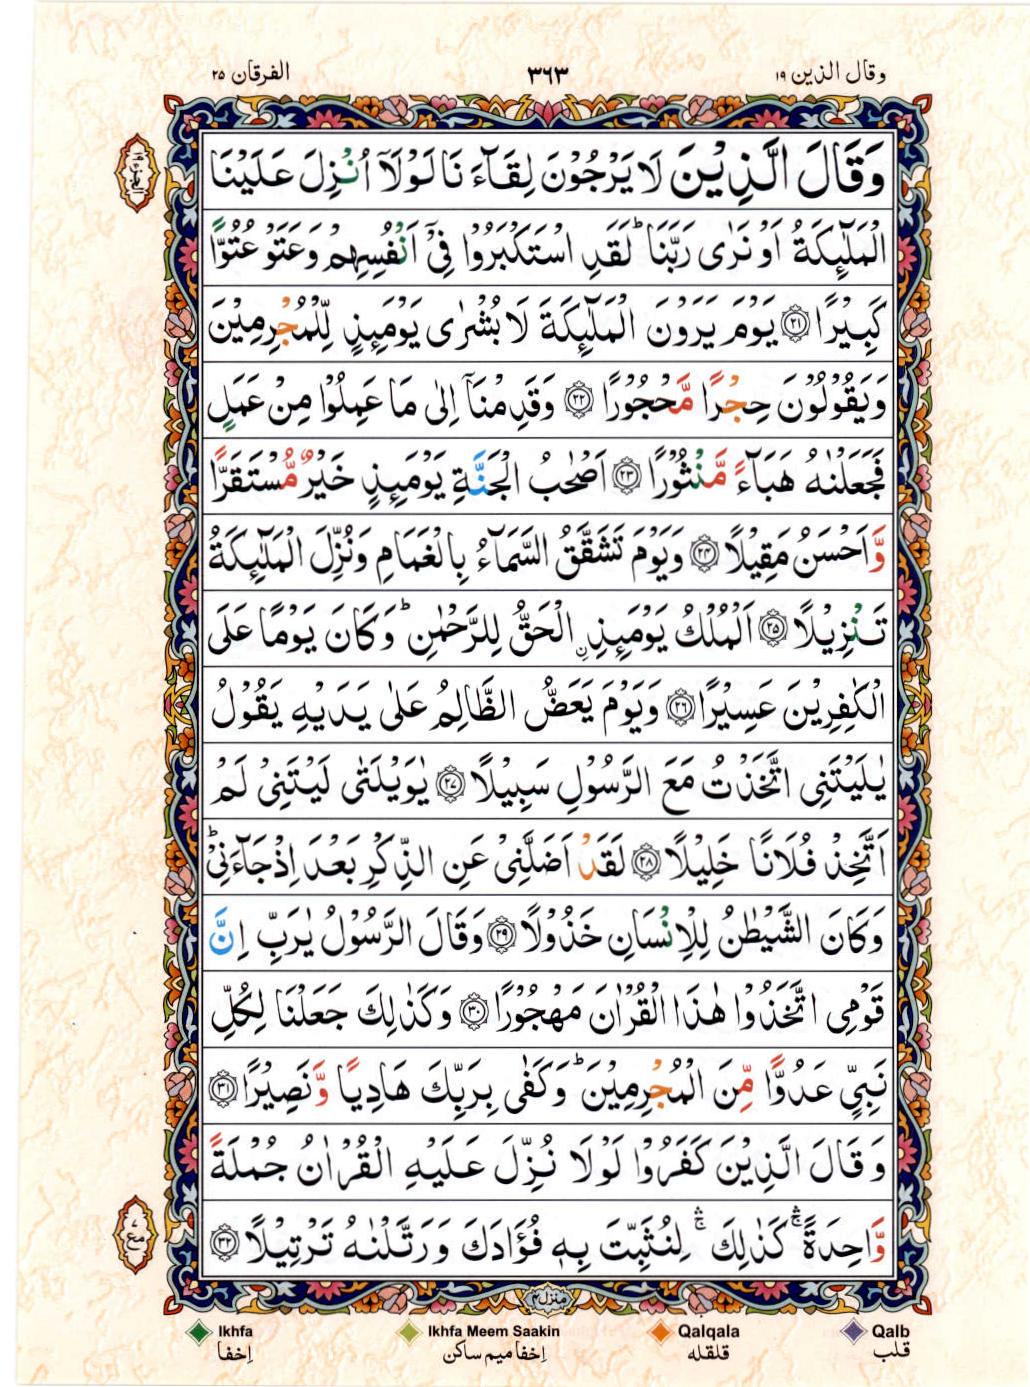 وقال الذين ١٩
٣٦٣
الفرقان ٢٥
وَقَالَ الَّذِيْنَ لَا يَرْجُوْنَ لِقَآءَ نَا لَوْلَآ اُنْزِلَ عَلَيْنَا
الْمَلٰٓئِكَةُ اَوْ نَرٰى رَبَّنَا ؕ لَقَدِ اسْتَكْبَرُوْا فِىْٓ اَنْفُسِهِمْ وَعَتَوْ عُتُوًّا
كَبِيْرًا ﴿٢١﴾ يَوْمَ يَرَوْنَ الْمَلٰٓئِكَةَ لَا بُشْرٰى يَوْمَئِذٍ لِّلْمُجْرِمِيْنَ
وَيَقُوْلُوْنَ حِجْرًا مَّحْجُوْرًا ﴿٢٢﴾ وَقَدِمْنَآ اِلٰى مَا عَمِلُوْا مِنْ عَمَلٍ
فَجَعَلْنٰهُ هَبَآءً مَّنْثُوْرًا ﴿٢٣﴾ اَصْحٰبُ الْجَنَّةِ يَوْمَئِذٍ خَيْرٌ مُّسْتَقَرًّا
وَّاَحْسَنُ مَقِيْلًا ﴿٢٤﴾ وَيَوْمَ تَشَقَّقُ السَّمَآءُ بِالْغَمَامِ وَنُزِّلَ الْمَلٰٓئِكَةُ
تَنْزِيْلًا ﴿٢٥﴾ اَلْمُلْكُ يَوْمَئِذِ ۨالْحَقُّ لِلرَّحْمٰنِ ؕ وَكَانَ يَوْمًا عَلَى
الْكٰفِرِيْنَ عَسِيْرًا ﴿٢٦﴾ وَيَوْمَ يَعَضُّ الظَّالِمُ عَلٰى يَدَيْهِ يَقُوْلُ
يٰلَيْتَنِى اتَّخَذْتُ مَعَ الرَّسُوْلِ سَبِيْلًا ﴿٢٧﴾ يٰوَيْلَتٰى لَيْتَنِىْ لَمْ
اَتَّخِذْ فُلَانًا خَلِيْلًا ﴿٢٨﴾ لَقَدْ اَضَلَّنِىْ عَنِ الذِّكْرِ بَعْدَ اِذْ جَآءَنِىْ ؕ
وَكَانَ الشَّيْطٰنُ لِلْاِنْسَانِ خَذُوْلًا ﴿٢٩﴾ وَقَالَ الرَّسُوْلُ يٰرَبِّ اِنَّ
قَوْمِى اتَّخَذُوْا هٰذَا الْقُرْاٰنَ مَهْجُوْرًا ﴿٣٠﴾ وَكَذٰلِكَ جَعَلْنَا لِكُلِّ
نَبِىٍّ عَدُوًّا مِّنَ الْمُجْرِمِيْنَ ؕ وَكَفٰى بِرَبِّكَ هَادِيًا وَّنَصِيْرًا ﴿٣١﴾
وَقَالَ الَّذِيْنَ كَفَرُوْا لَوْلَا نُزِّلَ عَلَيْهِ الْقُرْاٰنُ جُمْلَةً
وَّاحِدَةً ۛۚ كَذٰلِكَ ۛۚ لِنُثَبِّتَ بِهٖ فُؤَادَكَ وَرَتَّلْنٰهُ تَرْتِيْلًا ﴿٣٢﴾
منزل ٤
Ikhfa
اِخفا
Ikhfa Meem Saakin
اِخفا میم ساکن
Qalqala
قلقله
Qalb
قلب